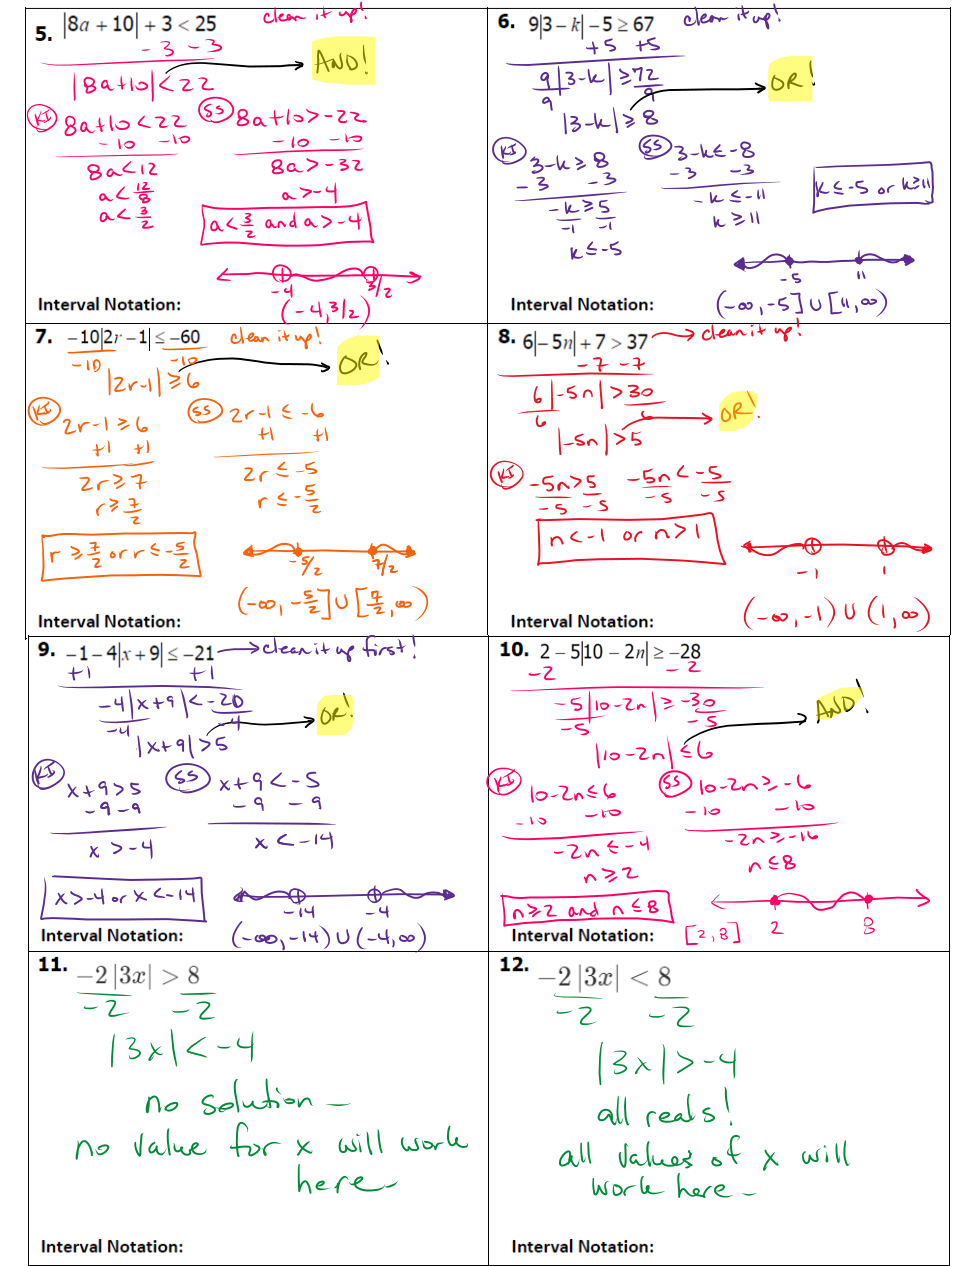 5. |8a + 10| + 3 < 25 clean it up!
- 3 - 3
|8a+10| < 22 AND!
KI 8a+10 < 22 SS 8a+10 > -22
- 10 - 10 - 10 - 10
8a < 12 8a > -32
a < 12/8 a > -4
a < 3/2
a < 3/2 and a > -4
-4 3/2
Interval Notation: (-4, 3/2)
6. 9|3 - k| - 5 ≥ 67 clean it up!
+5 +5
9|3-k| ≥ 72 OR!
9 9
|3-k| ≥ 8
KI 3-k ≥ 8 SS 3-k ≤ -8
- 3 - 3 - 3 - 3
-k ≥ 5 -k ≤ -11
-1 -1 k ≥ 11
k ≤ -5
k ≤ -5 or k ≥ 11
-5 11
Interval Notation: (-∞, -5] ∪ [11, ∞)
7. -10|2r - 1| ≤ -60 clean it up!
-10 -10
|2r-1| ≥ 6 OR!
KI 2r-1 ≥ 6 SS 2r-1 ≤ -6
+1 +1 +1 +1
2r ≥ 7 2r ≤ -5
r ≥ 7/2 r ≤ -5/2
r ≥ 7/2 or r ≤ -5/2
-5/2 7/2
(-∞, -5/2] ∪ [7/2, ∞)
Interval Notation:
8. 6|-5n| + 7 > 37 clean it up!
- 7 - 7
6|-5n| > 30
6 6 OR!
|-5n| > 5
KI -5n > 5 -5n < -5
-5 -5 -5 -5
n < -1 or n > 1
-1 1
(-∞, -1) ∪ (1, ∞)
Interval Notation:
9. -1 - 4|x + 9| ≤ -21 clean it up first!
+1 +1
-4|x+9| < -20
-4 -4 OR!
|x+9| > 5
KI x+9 > 5 SS x+9 < -5
- 9 - 9 - 9 - 9
x > -4 x < -14
x > -4 or x < -14
-14 -4
Interval Notation: (-∞, -14) ∪ (-4, ∞)
10. 2 - 5|10 - 2n| ≥ -28
-2 - 2
-5|10-2n| ≥ -30 AND!
-5 -5
|10-2n| ≤ 6
KI 10-2n ≤ 6 SS 10-2n ≥ -6
-10 -10 -10 -10
-2n ≤ -4 -2n ≥ -16
n ≥ 2 n ≤ 8
n ≥ 2 and n ≤ 8
2 8
Interval Notation: [2, 8]
11. -2 |3x| > 8
-2 -2
|3x| < -4
no solution -
no value for x will work
here -
Interval Notation:
12. -2 |3x| < 8
-2 -2
|3x| > -4
all reals!
all values of x will
work here -
Interval Notation: